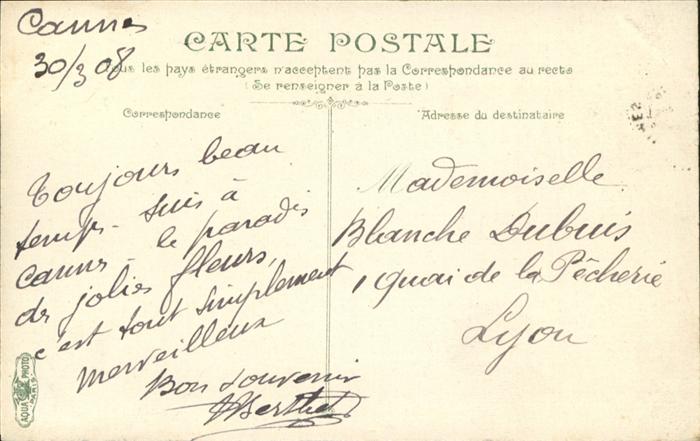 Cannes
30/3 08
CARTE POSTALE
ous les pays étrangers n'acceptent pas la Correspondance au recto
(Se renseigner à la Poste)
Correspondance
Toujours beau
temps - suis à
Cannes - le paradis
des jolies fleurs,
c'est tout simplement
merveilleux
Bon souvenir
Berthet
Adresse du destinataire
Mademoiselle
Blanche Dubuis
1 Quai de la Pêcherie
Lyon
AQUA PHOTO
PARIS